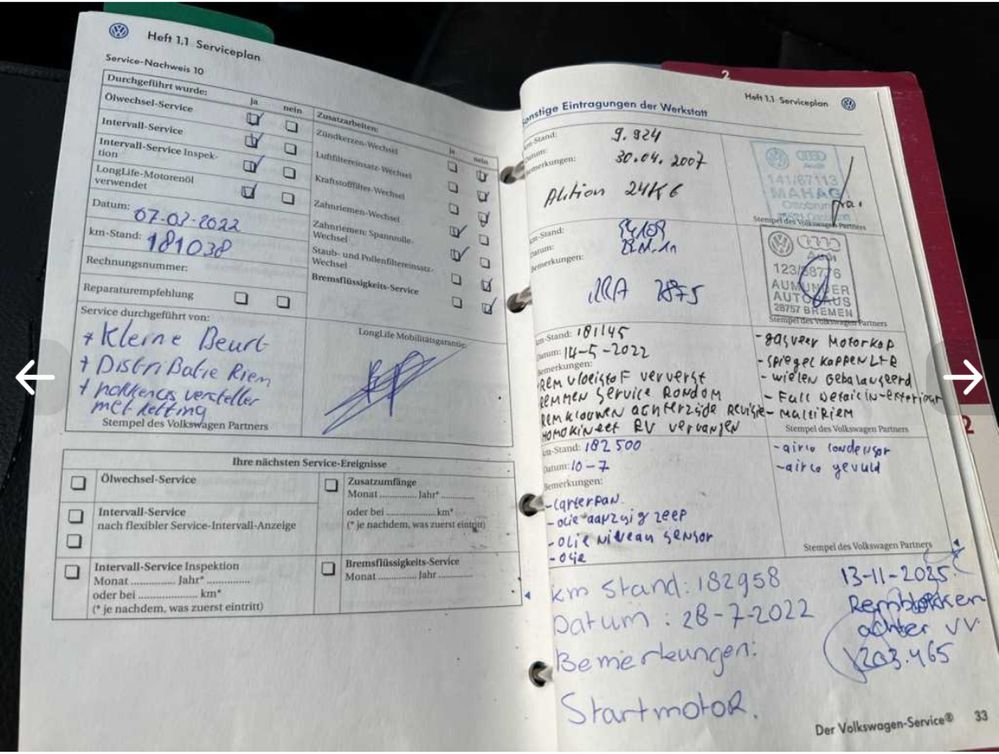 Heft 1.1 Serviceplan
Service-Nachweis 10
Durchgeführt wurde:
ja nein
Ölwechsel-Service
Intervall-Service
Intervall-Service Inspek-
tion
LongLife-Motorenöl
verwendet
Datum: 07-02-2022
km-Stand: 181038
Rechnungsnummer:
Reparaturempfehlung
Zusatzarbeiten:
ja nein
Zündkerzen-Wechsel
Luftfiltereinsatz-Wechsel
Kraftstofffilter-Wechsel
Zahnriemen-Wechsel
Zahnriemen: Spannrolle-
Wechsel
Staub- und Pollenfiltereinsatz-
Wechsel
Bremsflüssigkeits-Service
Service durchgeführt von:
+ Kleine Beurt
+ Distributie Riem
+ nokkenas versteller
met ketting
Stempel des Volkswagen Partners
LongLife Mobilitätsgarantie
Ihre nächsten Service-Ereignisse
Ölwechsel-Service
Intervall-Service
nach flexibler Service-Intervall-Anzeige
Intervall-Service Inspektion
Monat ............ Jahr* ............
oder bei ............ km*
(* je nachdem, was zuerst eintritt)
Zusatzumfänge
Monat ............ Jahr* ............
oder bei ............ km*
(* je nachdem, was zuerst eintritt)
Bremsflüssigkeits-Service
Monat ............ Jahr ............
2
Heft 1.1 Serviceplan
onstige Eintragungen der Werkstatt
km-Stand: 9.924
Datum: 30.04.2007
Bemerkungen:
Aktion 24K6
141/67113
MAHAG
Stempel des Volkswagen Partners
km-Stand:
Datum:
Bemerkungen:
Audi
123/38776
AUMUNDER
AUTOHAUS
28757 BREMEN
Stempel des Volkswagen Partners
km-Stand: 181145
Datum: 14-5-2022
Bemerkungen:
REM vloeistof ververst
REMMEN service Rondom
REMklauwen achterzijde revisie
HOMOKINEET RV vervangen
- gasveer Motorkap
- spiegel kappen L+R
- wielen Gebalanseerd
- Full Detail in-exterieur
- MultiRiem
Stempel des Volkswagen Partners
km-Stand: 182500
Datum: 10-7
Bemerkungen:
- carterpan
- olie aanzuig zeep
- olie Niveau sensor
- olie
- airco condensor
- airco gevuld
Stempel des Volkswagen Partners
km stand: 182958
Datum: 28-7-2022
Bemerkungen:
Startmotor.
13-11-2025
Remblokken
achter VV
203.465
2
Der Volkswagen-Service® 33